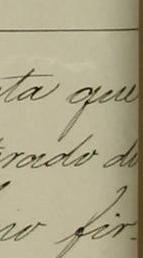 ta que
rado de
no fir-